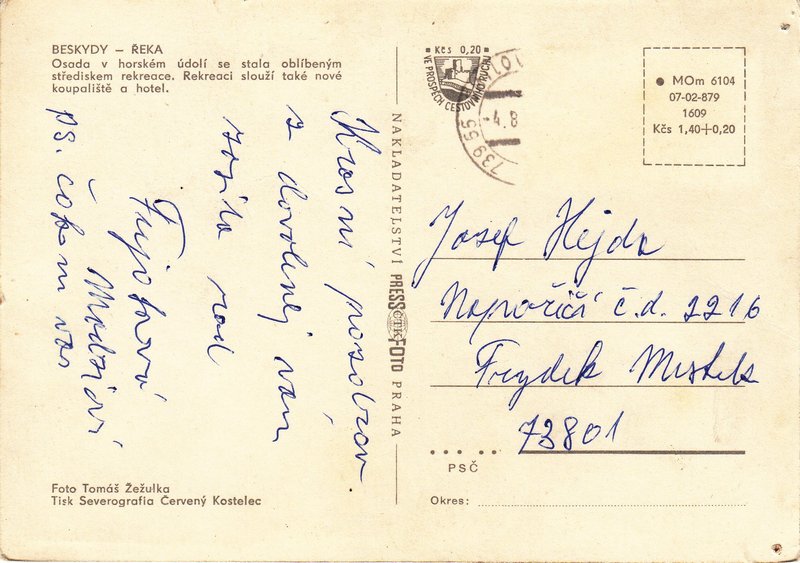 BESKYDY – ŘEKA
Osada v horském údolí se stala oblíbeným
střediskem rekreace. Rekreaci slouží také nové
koupaliště a hotel.
z dovolenej
rod
ps.
vás
Foto Tomáš Žežulka
Tisk Severografia Červený Kostelec
NAKLADATELSTVÍ PRESSFOTO PRAHA
ČTK
Kčs 0,20
VE PROSPĚCH CESTOVNÍHO RUCHU
739 55
-4.8
MOm 6104
07-02-879
1609
Kčs 1,40+0,20
Josef Hejda
Napoříčí č.d. 2216
Frydek Mistek
73801
PSČ
Okres: